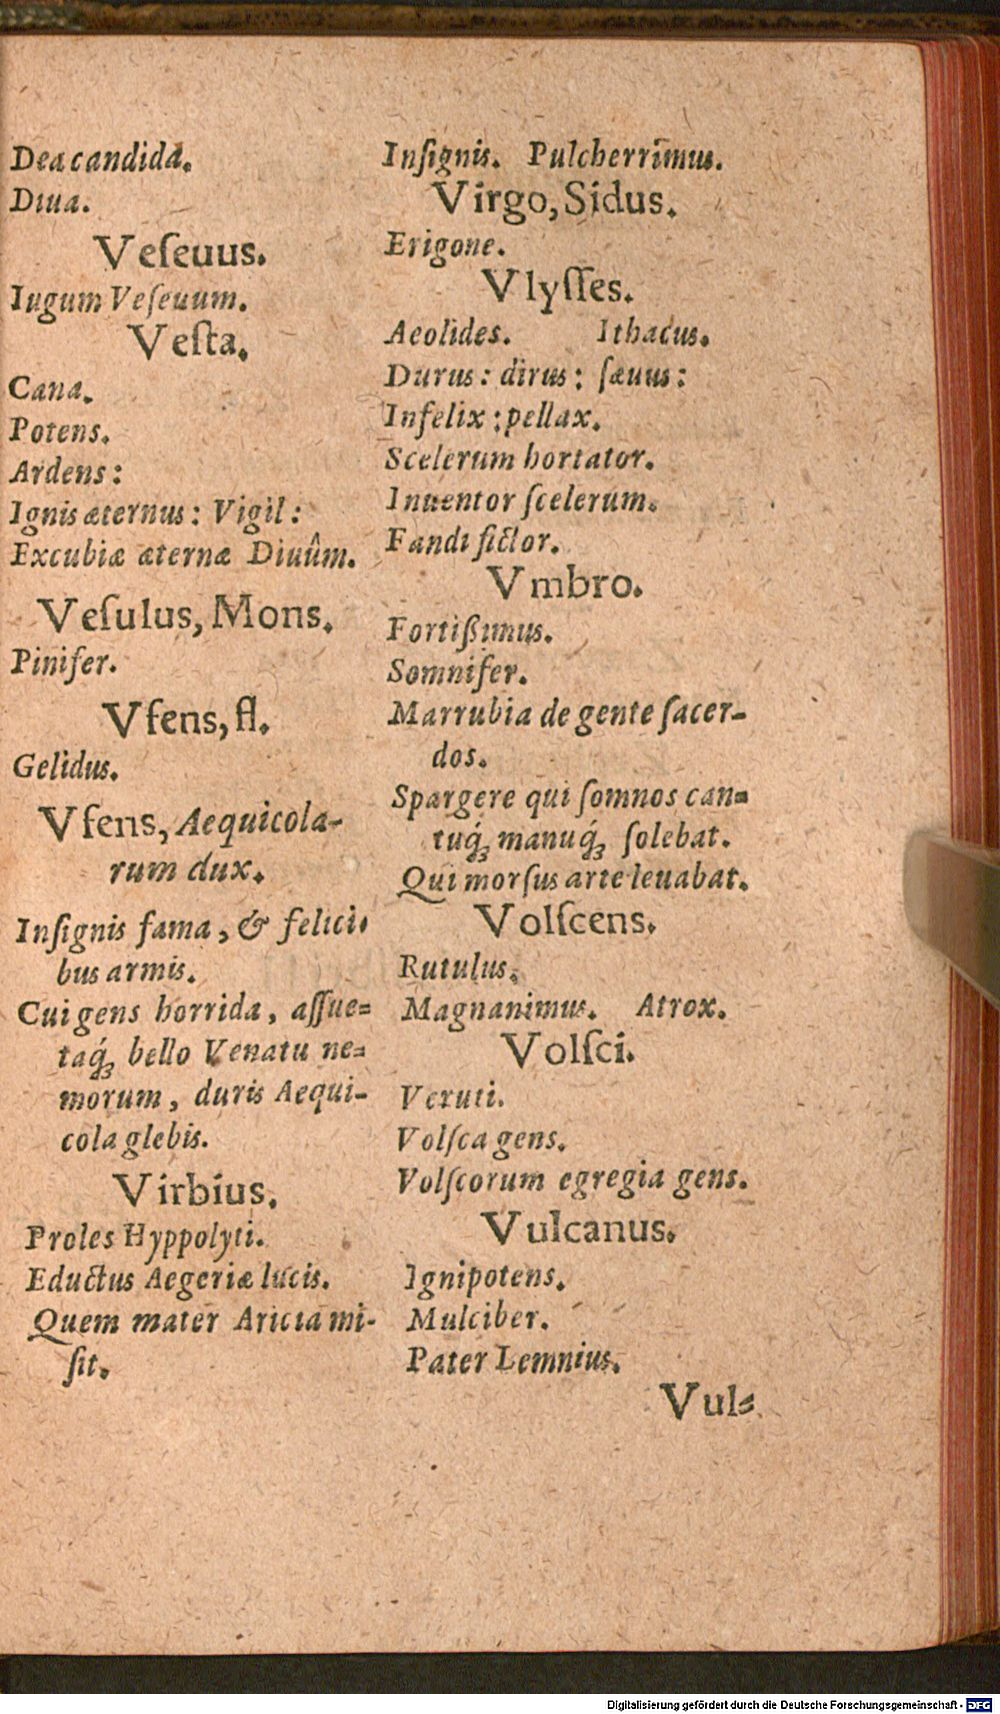 Dea candida.
Diua.
Veſeuus.
Iugum Veſeuum.
Veſta.
Cana.
Potens.
Ardens:
Ignis æternus: Vigil:
Excubiæ æternæ Diuûm.
Veſulus, Mons.
Pinifer.
Vfens, fl.
Gelidus.
Vfens, Aequicola-
rum dux.
Inſignis fama, & felici-
bus armis.
Cui gens horrida, aſſue=
taq́ꝫ bello Venatu ne=
morum, duris Aequi-
cola glebis.
Virbius.
Proles Hyppolyti.
Eductus Aegeriæ lucis.
Quem mater Aricia mi-
ſit.
Inſignis. Pulcherrimus.
Virgo, Sidus.
Erigone.
Vlyſſes.
Aeolides. Ithacus.
Durus: dirus: ſæuus:
Infelix: pellax.
Scelerum hortator.
Inuentor ſcelerum.
Fandi fictor.
Vmbro.
Fortißimus.
Somnifer.
Marrubia de gente ſacer-
dos.
Spargere qui ſomnos can=
tuq́ꝫ manuq́ꝫ ſolebat.
Qui morſus arte leuabat.
Volſcens.
Rutulus.
Magnanimus. Atrox.
Volſci.
Veruti.
Volſca gens.
Volſcorum egregia gens.
Vulcanus.
Ignipotens.
Mulciber.
Pater Lemnius.
Vul=
Digitalisierung gefördert durch die Deutsche Forschungsgemeinschaft - DFG